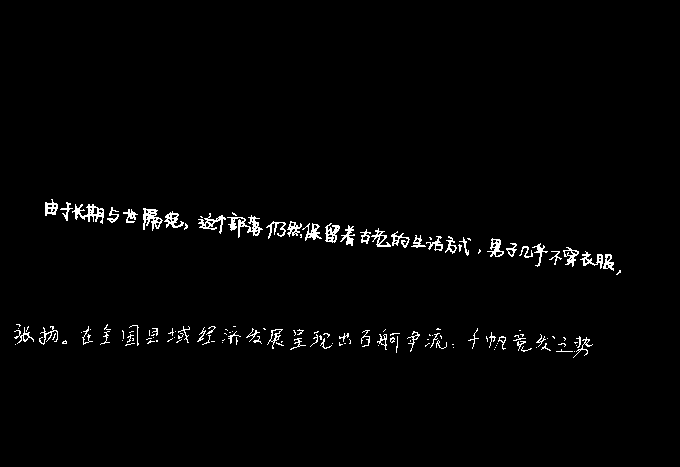 由于长期与世隔绝,这个部落仍然保留着古老的生活方式,男子几乎不穿衣服,
张扬。在全国县域经济发展呈现出百舸争流、千帆竞发之势